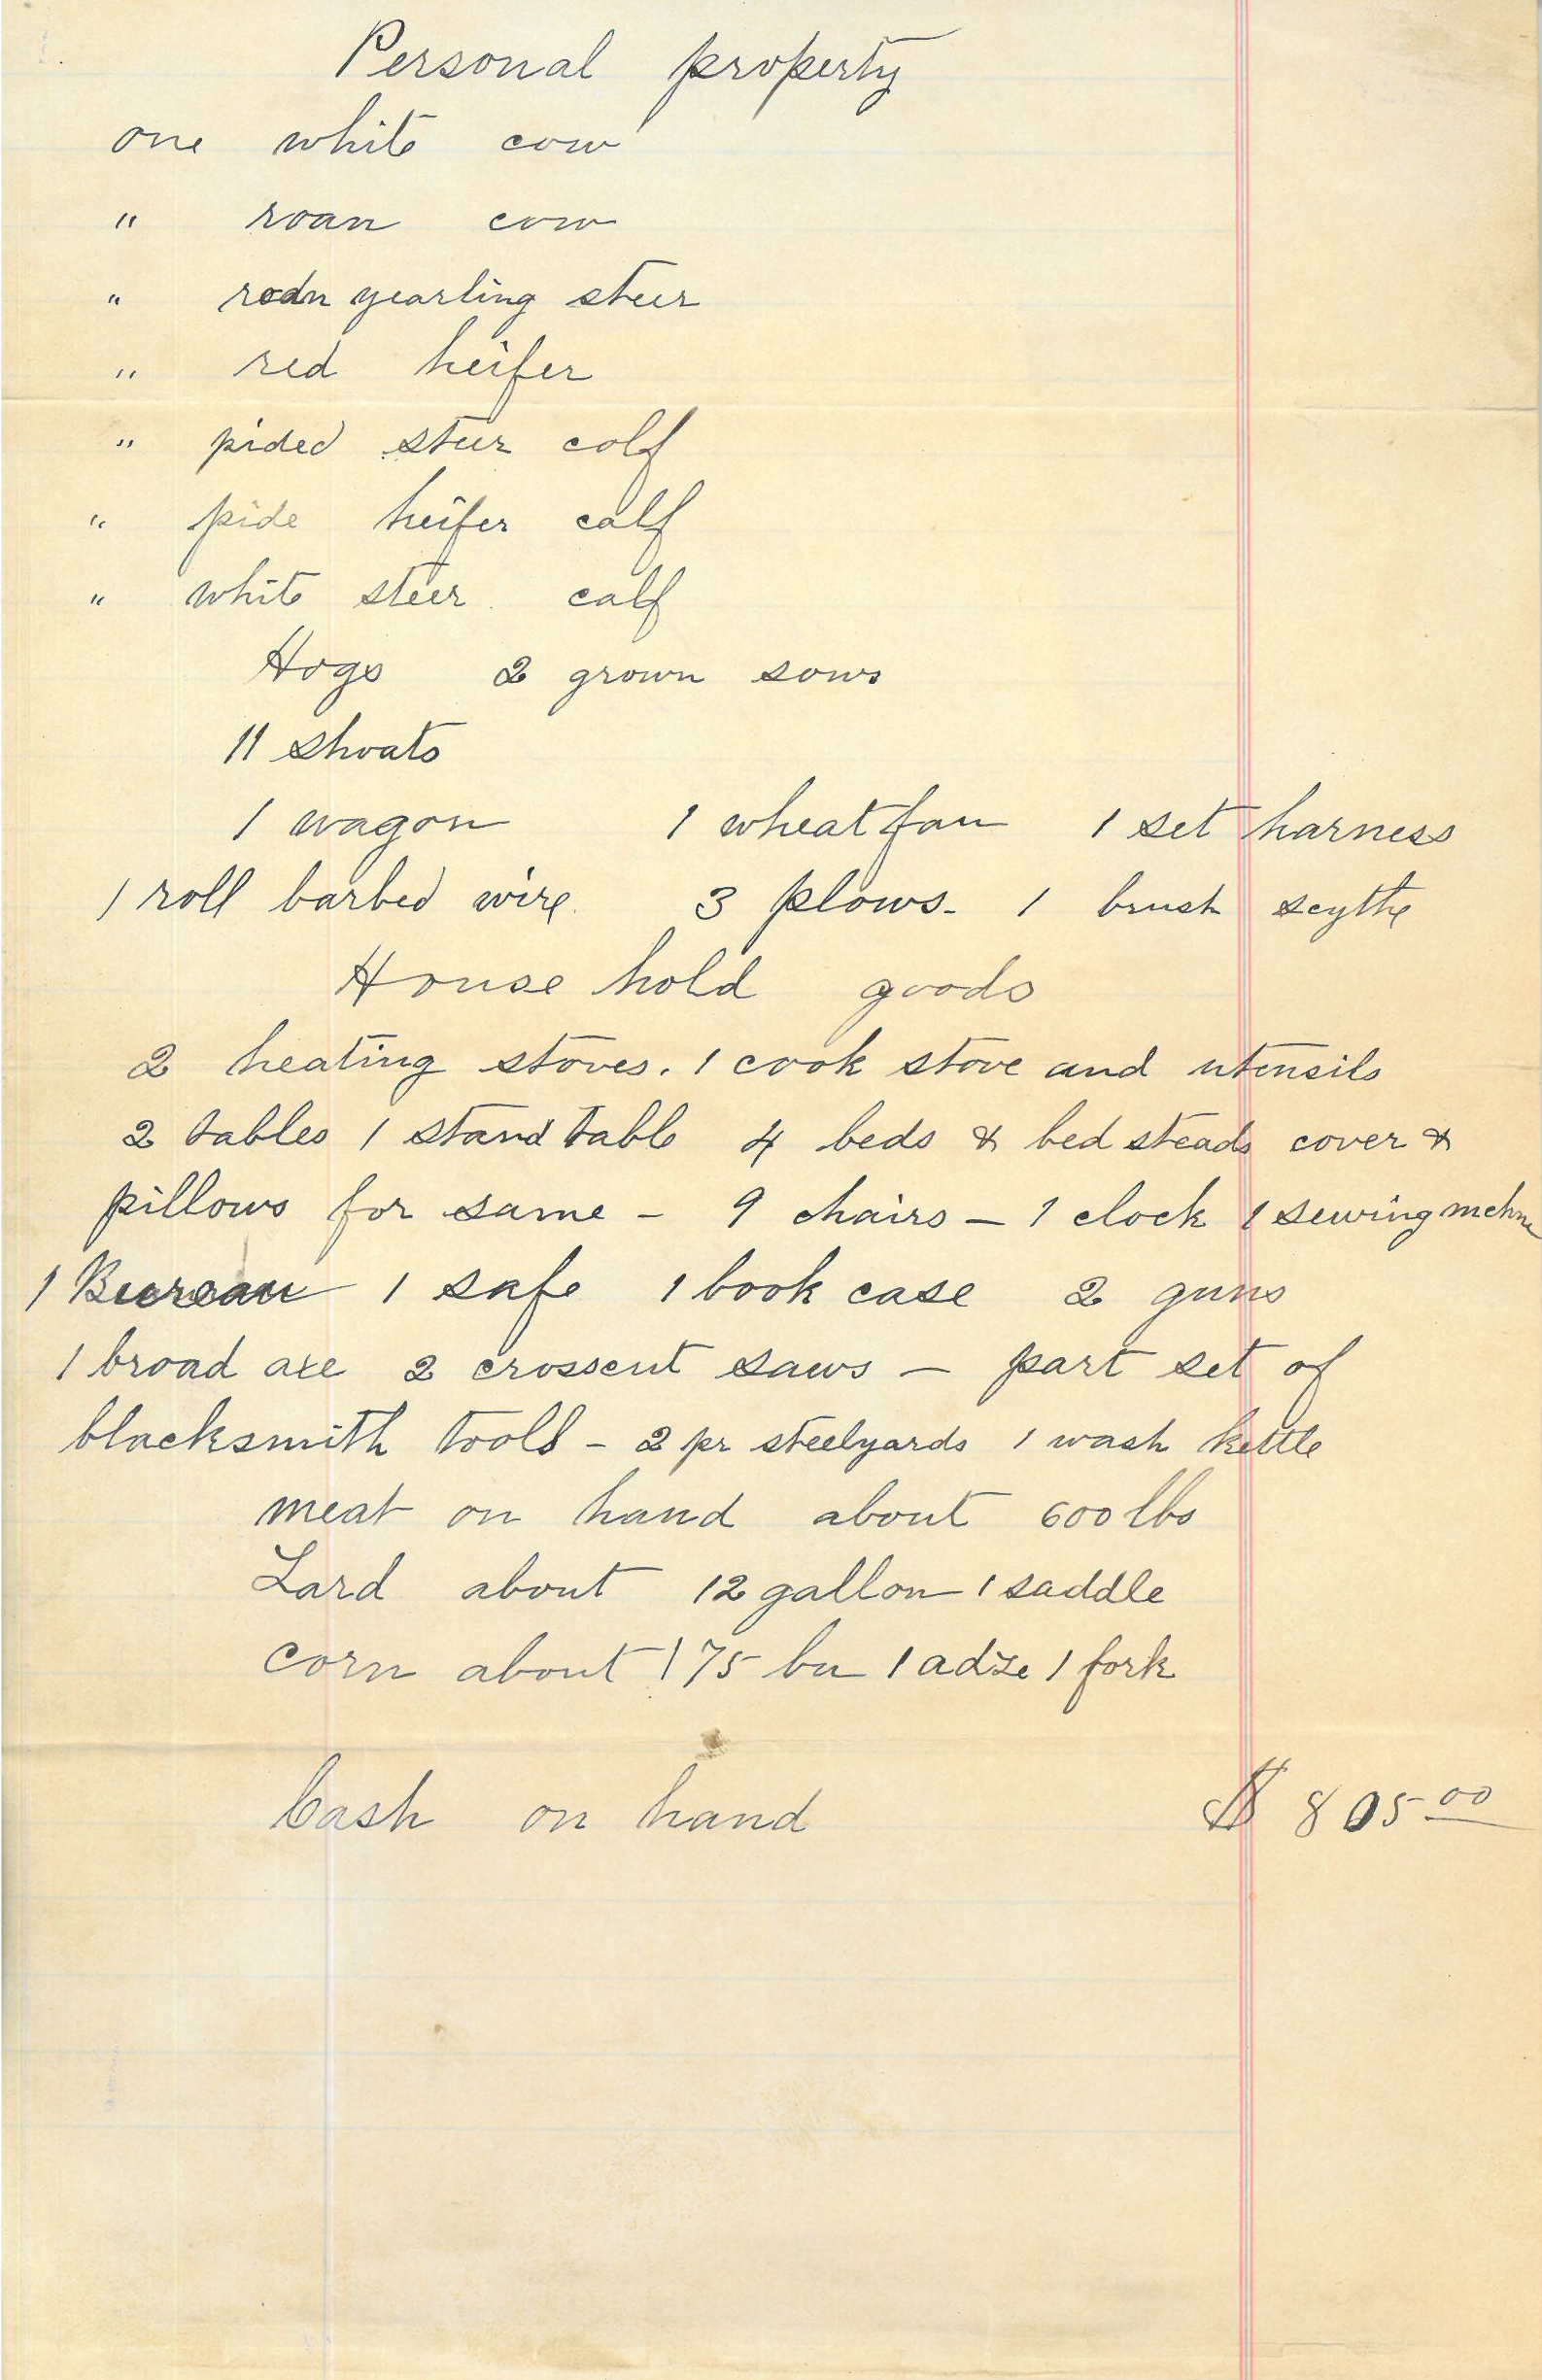 Personal property
one white cow
" roan cow
" roan yearling steer
" red heifer
" pided steer colf
" pide heifer calf
" white steer calf
Hogs 2 grown sows
11 shoats
1 wagon 1 wheat fan 1 set harness
1 roll barbed wire 3 plows - 1 brush scythe
House hold goods
2 heating stoves. 1 cook stove and utensils
2 tables 1 stand table 4 beds & bed steads cover &
pillows for same - 9 chairs - 1 clock 1 sewing mchne
1 Bureau 1 safe 1 book case 2 guns
1 broad axe 2 crosscut saws - part set of
blacksmith tools - 2 pr steelyards 1 wash kettle
meat on hand about 600 lbs
Lard about 12 gallon 1 saddle
corn about 175 bu 1 adze 1 fork
Cash on hand $ 805 00